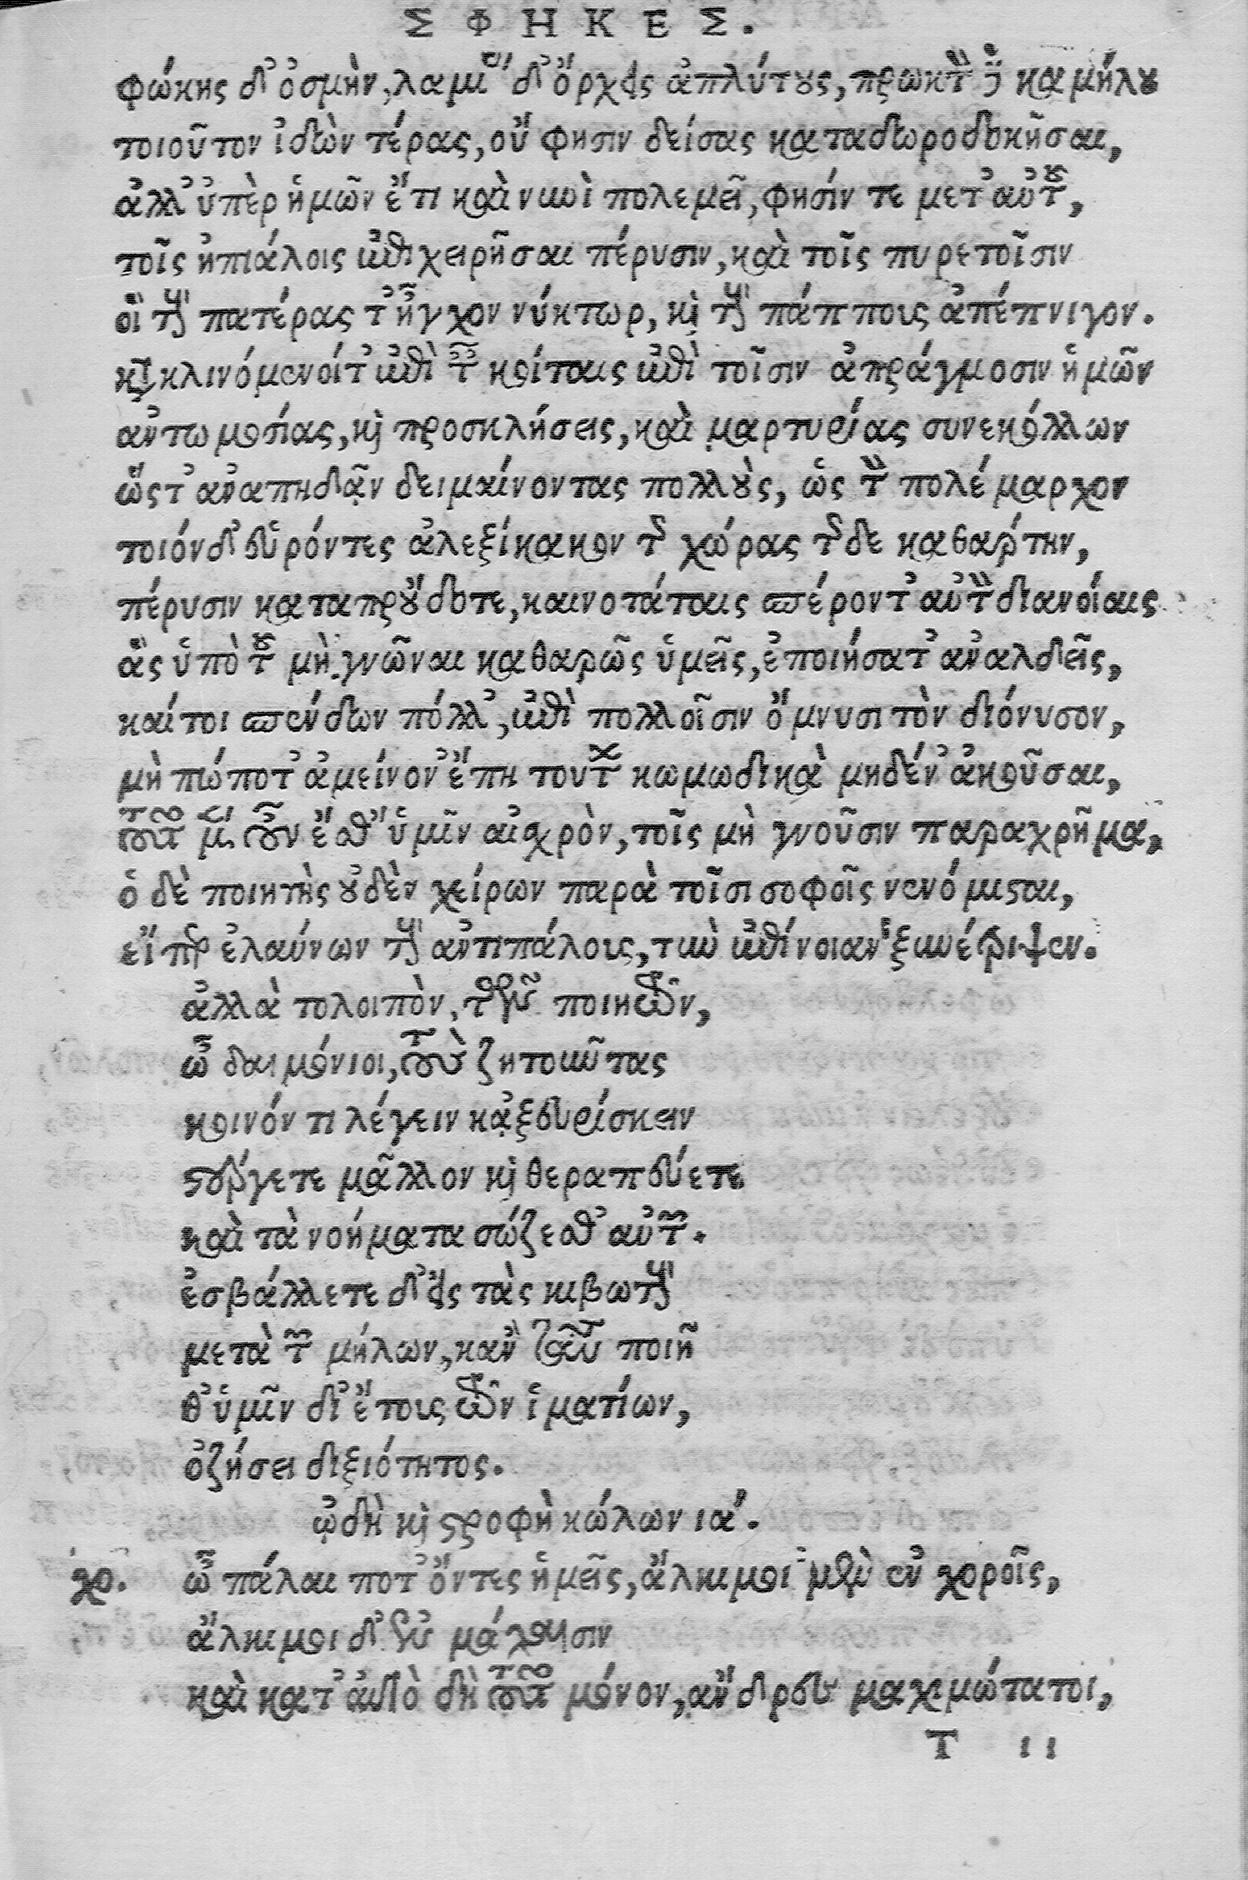 ΣΦΗΚΕΣ.
φώκης δ' ὀσμὴν, λαμίας δ' ὄρχεις ἀπλύτους, πρωκτὸν δὲ καμήλου
τοιοῦτον ἰδὼν τέρας, οὔ φησιν δείσας καταδωροδοκῆσαι,
ἀλλ' ὑπὲρ ἡμῶν ἔτι καὰ νυνὶ πολεμεῖ, φησίν τε μετ' αὐτοῦ,
τοῖς ἠπιάλοις ἐπιχειρῆσαι πέρυσιν, καὶ τοῖς πυρετοῖσιν
οἳ τοὺς πατέρας τ' ἦγχον νύκτωρ, καὶ τοὺς πάππους ἀπέπνιγον.
κατακλινόμενοίτ' ἐπὶ ταῖς κοίταις ἐπὶ τοῖσιν ἀπράγμοσιν ἡμῶν
ἀντωμοσίας, καὶ προσκλήσεις, καὶ μαρτυρίας συνεκόλλων
ὥστ' ἀναπηδᾷν δειμαίνοντας πολλοὺς, ὡς τὸν πολέμαρχον
τοιόνδ' εὑρόντες ἀλεξίκακον τῆς χώρας τῆσδε καθαρτὴν,
πέρυσιν καταπρούδοτε, καινοτάταις σπέροντ' αὐτὸν διανοίαις
ἃς ὑπὸ τοῦ μὴ γνῶναι καθαρῶς ὑμεῖς, ἐποιήσατ' ἀναλδεῖς,
καίτοι σπένδων πόλλ', ἐπὶ πολλοῖσιν ὄμνυσι τὸν διόνυσον,
μὴ πώποτ' ἀμείνον' ἔπη τούτων κωμωδικὰ μηδέν' ἀκοῦσαι,
τοῦτο μὲν οὖν ἔσθ' ὑμῖν αἰσχρὸν, τοῖς μὴ γνοῦσιν παραχρῆμα,
ὁ δὲ ποιητὴς οὐδὲν χείρων παρὰ τοῖσι σοφοῖς νενόμισται,
εἴπερ ἐλαύνων τοὺς ἀντιπάλους, τὴν ἐπίνοιαν ξυνέτριψεν.
ἀλλὰ τολοιπὸν, τῶν ποιητῶν,
ὦ δαιμόνιοι, τοὺς ζητοῦντας
καινόν τι λέγειν κᾀξευρίσκειν
στέργετε μᾶλλον καὶ θεραπεύετε
καὶ τὰ νοήματα σώζεσθ' αὐτῶν.
ἐσβάλλετε δ' εἰς τὰς κιβωτοὺς
μετὰ τῶν μήλων, κἂν ταῦτα ποιῆ
θ' ὑμῖν δι' ἔτους τῶν ἱματίων,
ὀζήσει δεξιότητος.
ᾠδὴ καὶ στροφὴ κώλων ια'.
χο. ὦ πάλαι ποτ' ὄντες ἡμεῖς, ἄλκιμοι μὲν ἐν χοροῖς,
ἄλκιμοι δ' ἐν μάχαισιν
καὶ κατ' αὐτὸ δὴ τοῦτο μόνον, ἄνδρες μαχιμώτατοι,
Τ ιι